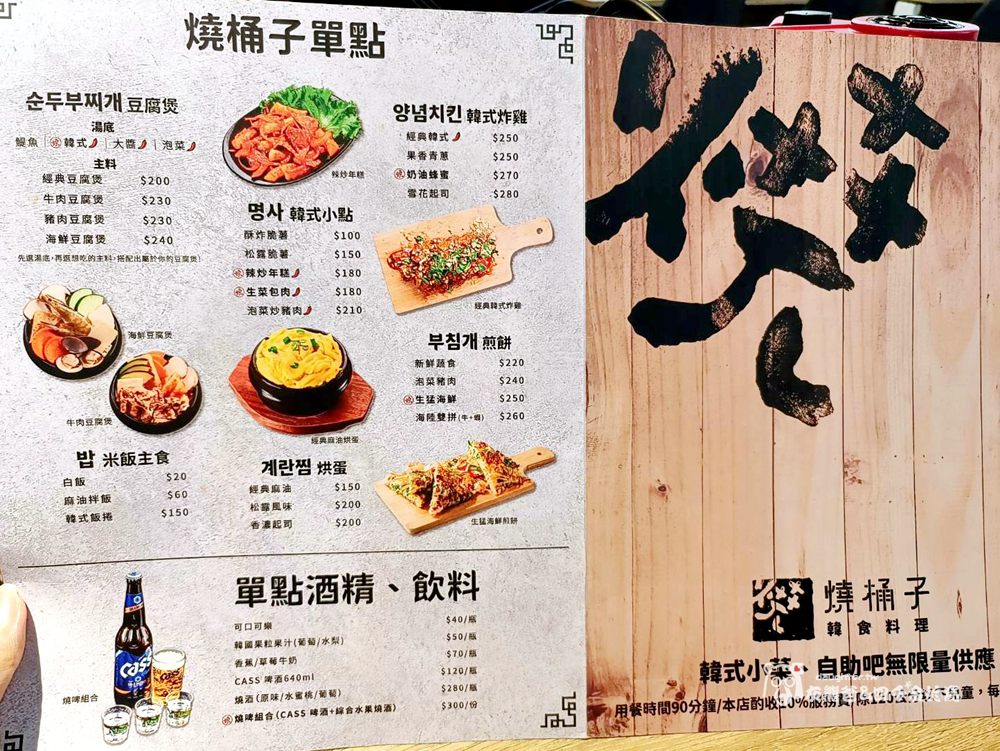 燒桶子單點
순두부찌개 豆腐煲
湯底
鯷魚 | 韓式 | 大醬 | 泡菜
主料
經典豆腐煲 $200
牛肉豆腐煲 $230
豬肉豆腐煲 $230
海鮮豆腐煲 $240
先選湯底，再選想吃的主料，搭配出屬於你的豆腐煲！
海鮮豆腐煲
牛肉豆腐煲
밥 米飯主食
白飯 $20
麻油拌飯 $60
韓式飯捲 $150
辣炒年糕
명사 韓式小點
酥炸脆薯 $100
松露脆薯 $150
辣炒年糕 $180
生菜包肉 $180
泡菜炒豬肉 $210
經典麻油烘蛋
계란찜 烘蛋
經典麻油 $150
松露風味 $200
香濃起司 $200
양념치킨 韓式炸雞
經典韓式 $250
果香青蔥 $250
奶油蜂蜜 $270
雪花起司 $280
經典韓式炸雞
부침개 煎餅
新鮮蔬食 $220
泡菜豬肉 $240
生猛海鮮 $250
海陸雙拼(牛+蝦) $260
生猛海鮮煎餅
單點酒精、飲料
可口可樂 $40/瓶
韓國果粒果汁(葡萄/水梨) $50/瓶
香蕉/草莓牛奶 $70/瓶
CASS 啤酒640ml $120/瓶
燒酒(原味/水蜜桃/葡萄) $280/瓶
燒啤組合(CASS 啤酒+綜合水果燒酒) $300/份
燒啤組合
Cass
燒桶子
韓食料理
韓式小菜、自助吧無限量供應
用餐時間90分鐘/本店酌收10%服務費